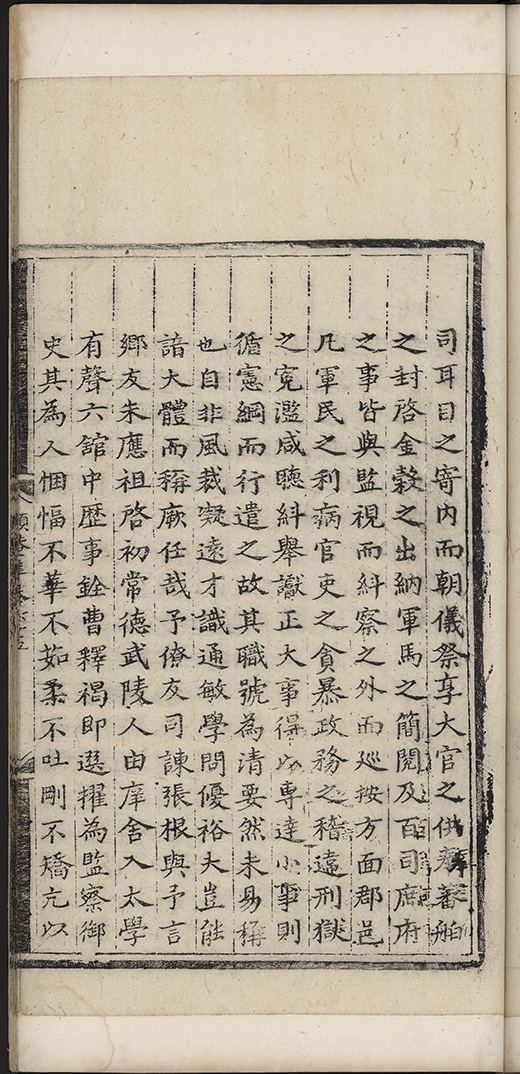 司耳目之寄內而朝儀祭享大官之供蕃舶
之封啓金穀之出納軍馬之簡閱及百司庶府
之事皆與監視而糾察之外而廵按方面郡邑
凡軍民之利病官吏之貪暴政務之稽違刑獄
之寃濫咸聽糾舉讞正大事得以專達小事則
循憲綱而行遣之故其職號為清要然未易稱
也自非風裁凝遠才識通敏學問優裕夫豈能
諳大體而稱厥任哉予僚友司諫張根與予言
鄉友朱應祖啓初常德武陵人由庠舍入太學
有聲六館中歷事銓曹釋褐即選擢為監察御
史其為人悃愊不華不茹柔不吐剛不矯亢以
頤菴集卷六 十五